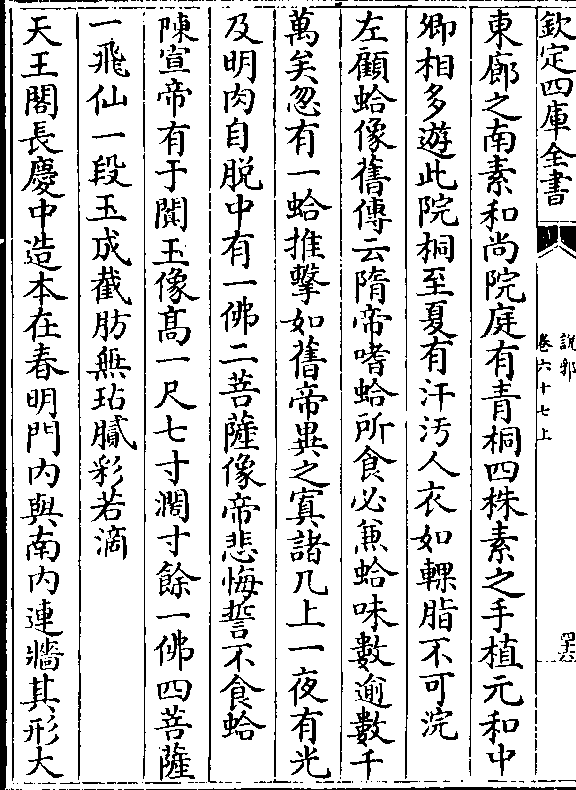 欽定四庫全書
說郛
卷六十七上
東廊之南素和尚院庭有青桐四株素之手植元和中
卿相多遊此院桐至夏有汗汚人衣如輠脂不可浣
左顧蛤像舊傳云隋帝嗜蛤所食必兼蛤味數逾數千
萬矣忽有一蛤推擊如舊帝異之寘諸几上一夜有光
及明肉自脱中有一佛二菩薩像帝悲悔誓不食蛤
陳宣帝有于闐玉像髙一尺七寸濶寸餘一佛四菩薩
一飛仙一段玉成截肪無玷膩彩若滴
天王閣長慶中造本在春明門内與南内連牆其形大